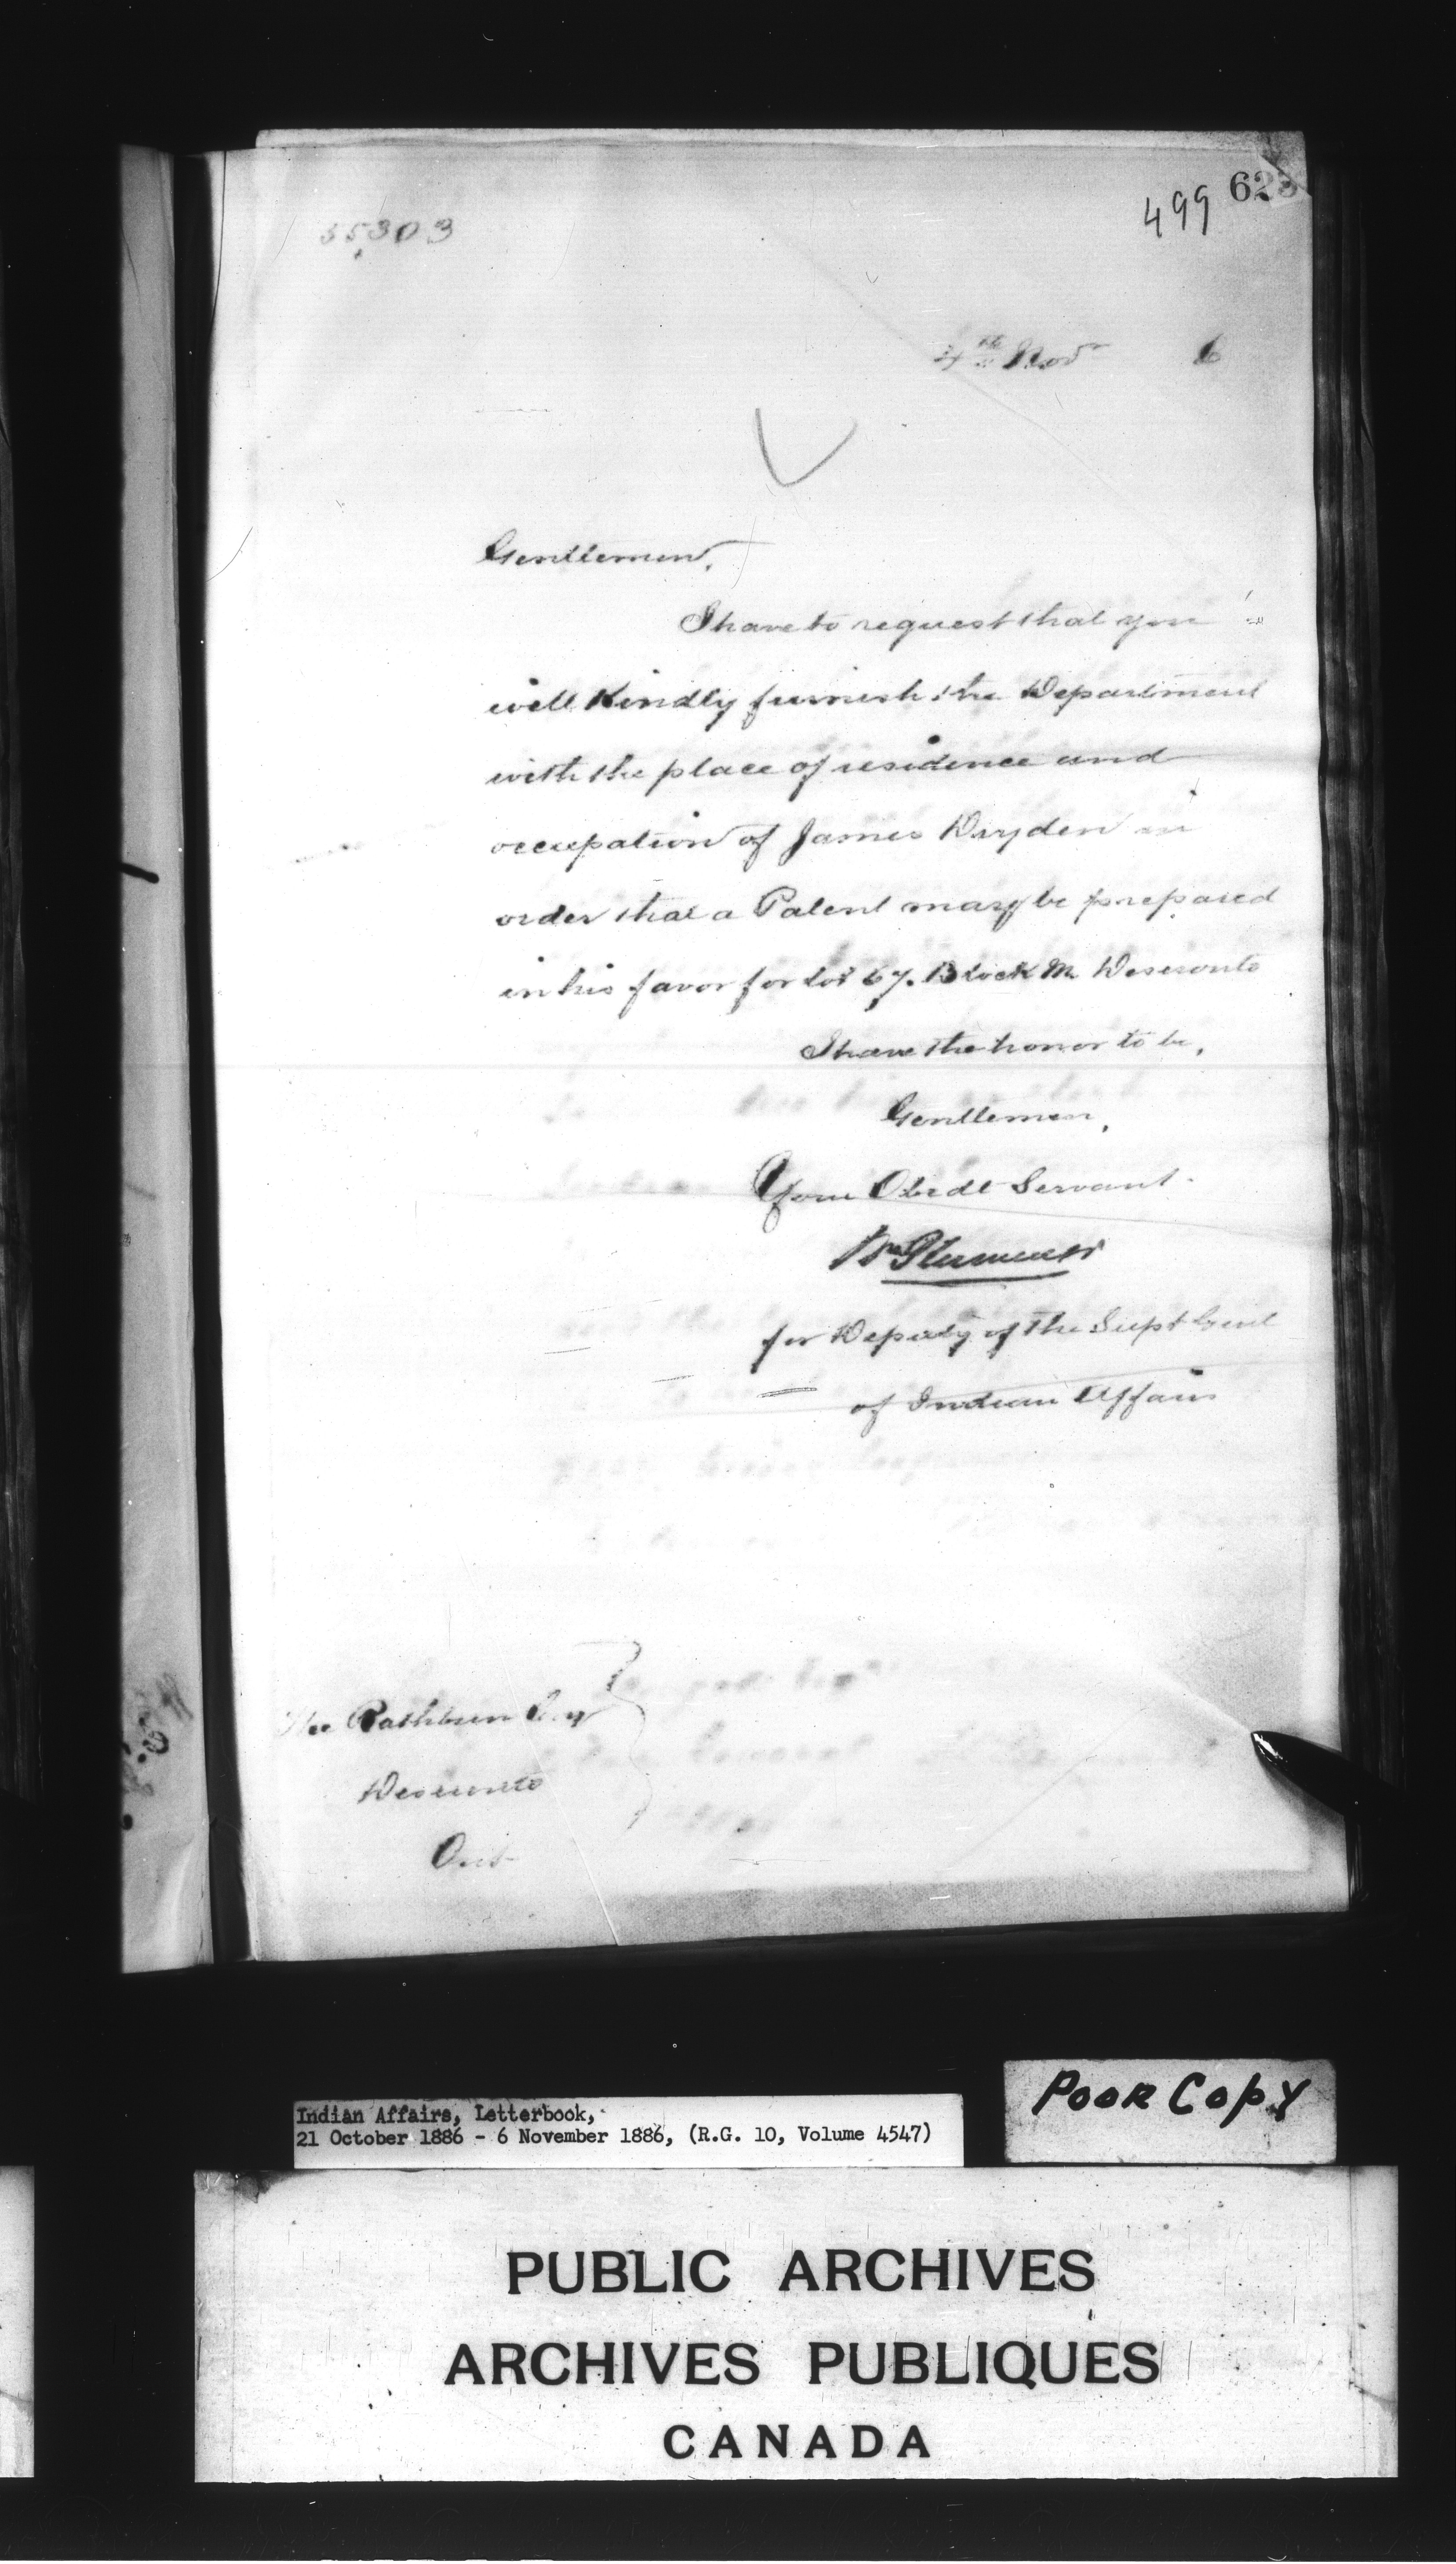 499 623
35303
4th Novr 6
Gentlemen,
I have to request that you
will Kindly furnish the Department
with the place of residence and
occupation of James Dryden in
order that a Patent may be prepared
in his favor for lot 67. Block M Deseronto
I have the honor to be,
Gentlemen,
Your Obedt Servant.
for Deputy of the Supt Genl
of Indian Affairs
The Rathbun Coy
Deseronto
Ont
Poor Copy
Indian Affairs, Letterbook,
21 October 1886 - 6 November 1886, (R.G. 10, Volume 4547)
PUBLIC ARCHIVES
ARCHIVES PUBLIQUES
CANADA